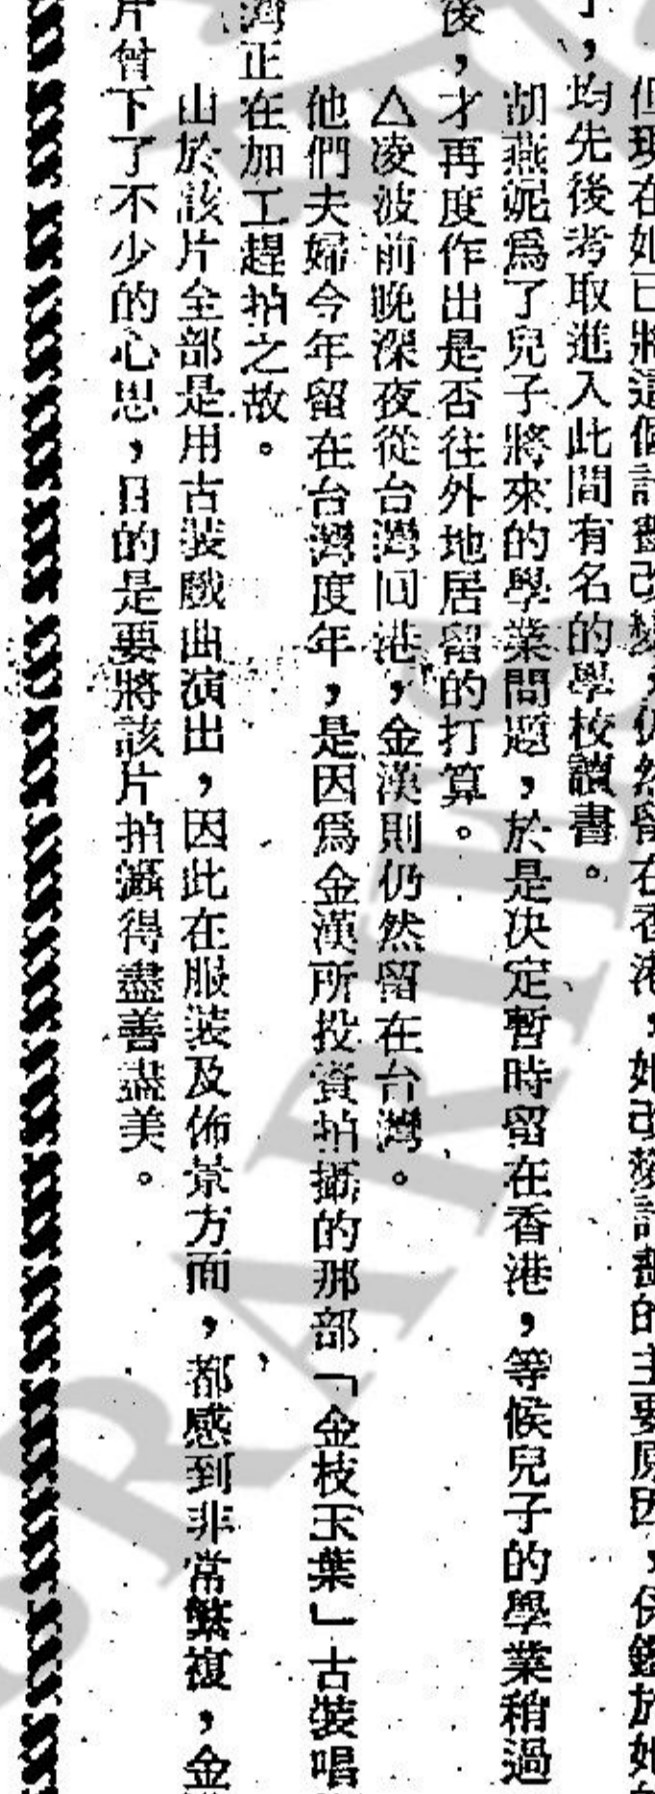 但現在她已將這個計劃改變，仍然留在香港，她改變計劃的主要原因，係鑑於她
，均先後考取進入此間有名的學校讀書。
胡燕妮爲了兒子將來的學業問題，於是決定暫時留在香港，等候兒子的學業稍過
後，才再度作出是否往外地居留的打算。
△凌波前晚深夜從台灣回港，金漢則仍然留在台灣。
他們夫婦今年留在台灣度年，是因爲金漢所投資拍攝的那部「金枝玉葉」古裝唱
灣正在加工趕拍之故。
由於該片全部是用古裝戲曲演出，因此在服裝及佈景方面，都感到非常繁複，金
片曾下了不少的心思，目的是要將該片拍攝得盡善盡美。